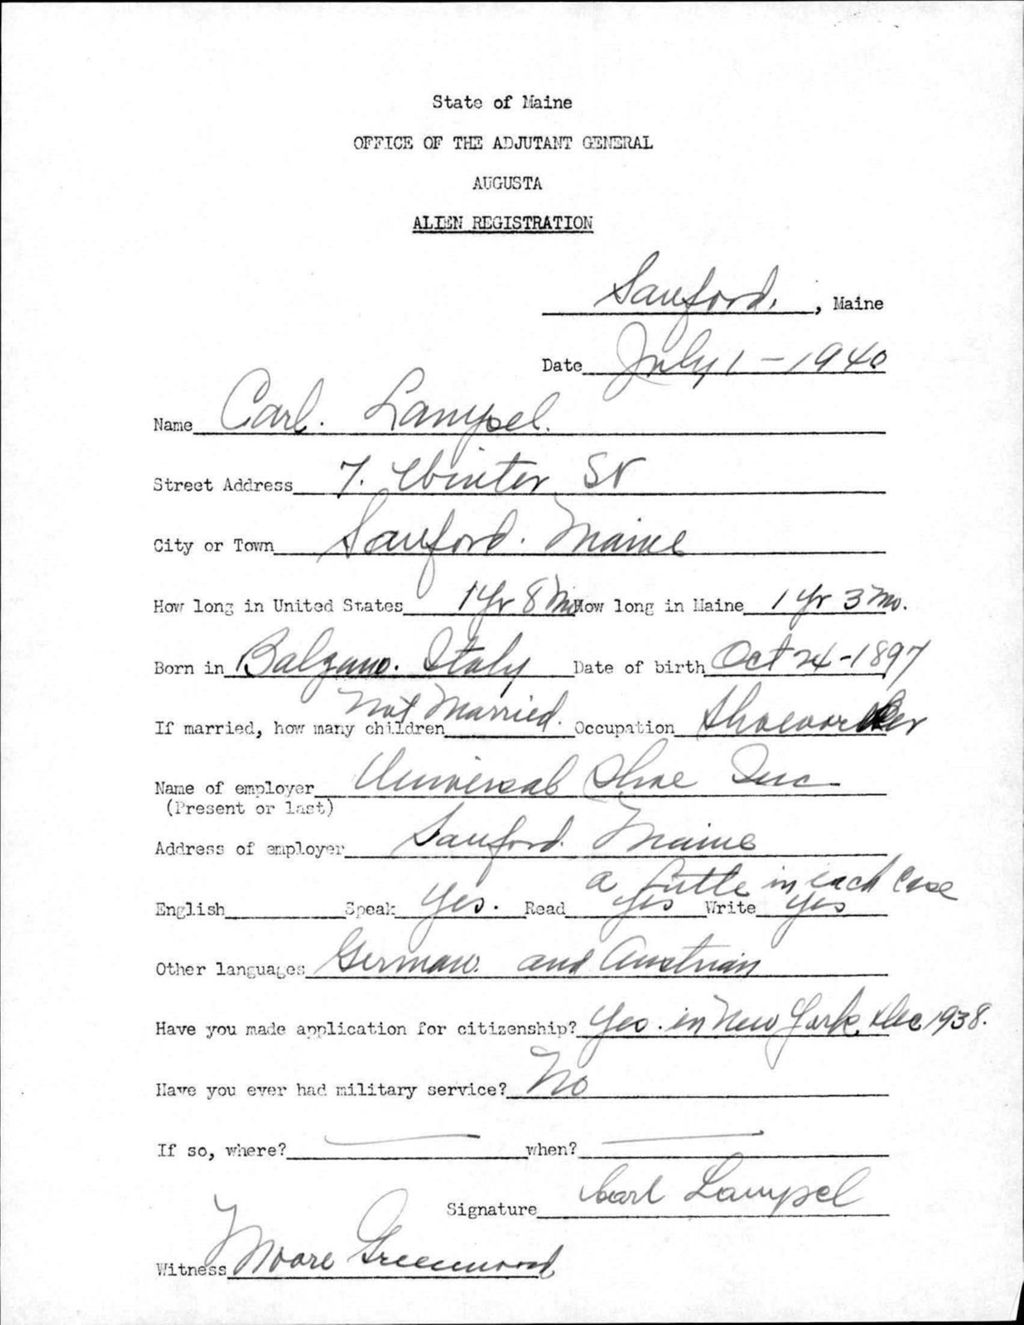 State of Maine
OFFICE OF THE ADJUTANT GENERAL
AUGUSTA
ALIEN REGISTRATION
Sanford. , Maine
Date July 1 - 1940
Name Carl. Lampel.
Street Address 7. Winter St
City or Town Sanford. Maine
How long in United States 1 Yr 8 Mo How long in Maine 1 Yr 3 Mo.
Born in Balzano. Italy Date of birth Oct 24 - 1897
If married, how many children Not Married. Occupation Shoeworker
Name of employer Universal Shoe Inc
(Present or last)
Address of employer Sanford. Maine
a little in each case
English Speak Yes. Read Yes Write Yes
Other languages German. and Austrian
Have you made application for citizenship? Yes. in New York, Dec 1938.
Have you ever had military service? No
If so, where? when?
Signature Carl Lampel
Witness Moore Greenwood